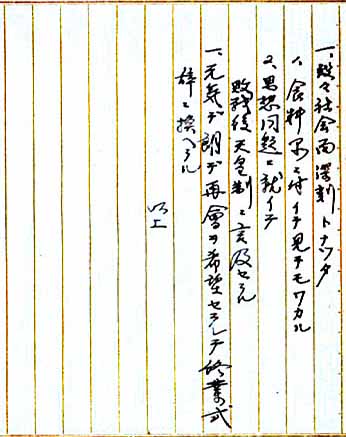 一、段々社会面深刻トナツタ
1、食料不ニ付イテ見テモワカル
2、思想問題ニ就イテ
敗戦後天皇制ニ言及セラル
一、元気デ朗デ再會ヲ希望セラレテ終業式
辞ニ換ヘラル
以上